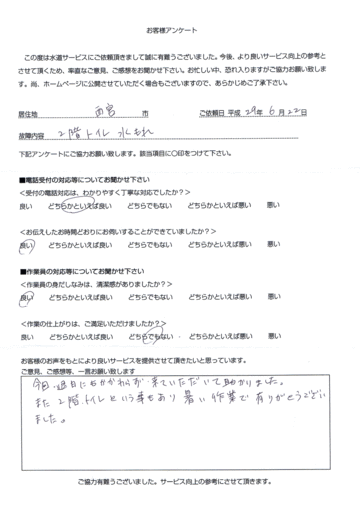 お客様アンケート
この度は水道サービスにご依頼頂きまして誠に有難うございました。今後、より良いサービス向上の参考と
させて頂くため、率直なご意見、ご感想をお聞かせ下さい。お忙しい中、恐れ入りますがご協力お願い致しま
す。尚、ホームページに公開させていただく場合もございますので、あらかじめご了承下さい。
居住地 西宮 市 ご依頼日 平成 29年 6月 22日
故障内容 2階トイレ 水もれ
下記アンケートにご協力お願い致します。該当項目に〇印をつけて下さい。
■電話受付の対応等についてお聞かせ下さい
<受付の電話対応は、わかりやすく丁寧な対応でしたか?>
良い どちらかといえば良い どちらでもない どちらかといえば悪い 悪い
<お伝えしたお時間どおりにお伺いすることができていましたか?>
良い どちらかといえば良い どちらでもない どちらかといえば悪い 悪い
■作業員の対応等についてお聞かせ下さい
<作業員の身だしなみは、清潔感がありましたか?>
良い どちらかといえば良い どちらでもない どちらかといえば悪い 悪い
<作業の仕上がりは、ご満足いただけましたか?>
良い どちらかといえば良い どちらでもない どちらかといえば悪い 悪い
お客様のお声をもとにより良いサービスを提供させて頂きたいと思っています。
ご意見、ご感想等、一言お願い致します
今回、週日にもかかわらず、来ていただいて助かりました。
また2階、トイレという事もあり暑い作業で有りがとうござい
ました。
ご協力有難うございました。サービス向上の参考にさせて頂きます。